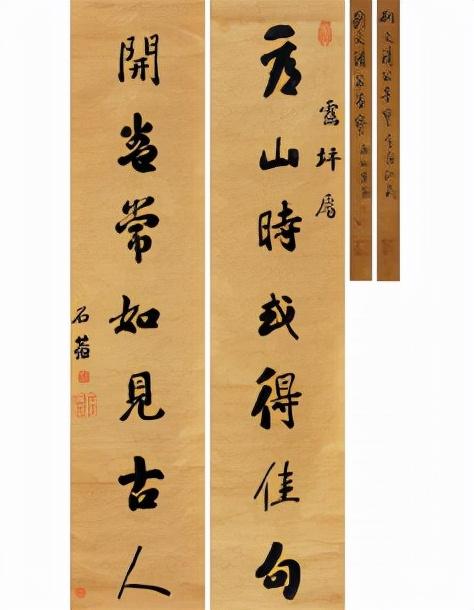 看山時或得佳句
坪屬
開卷常如見古人
石菴
劉文清公
劉文清公